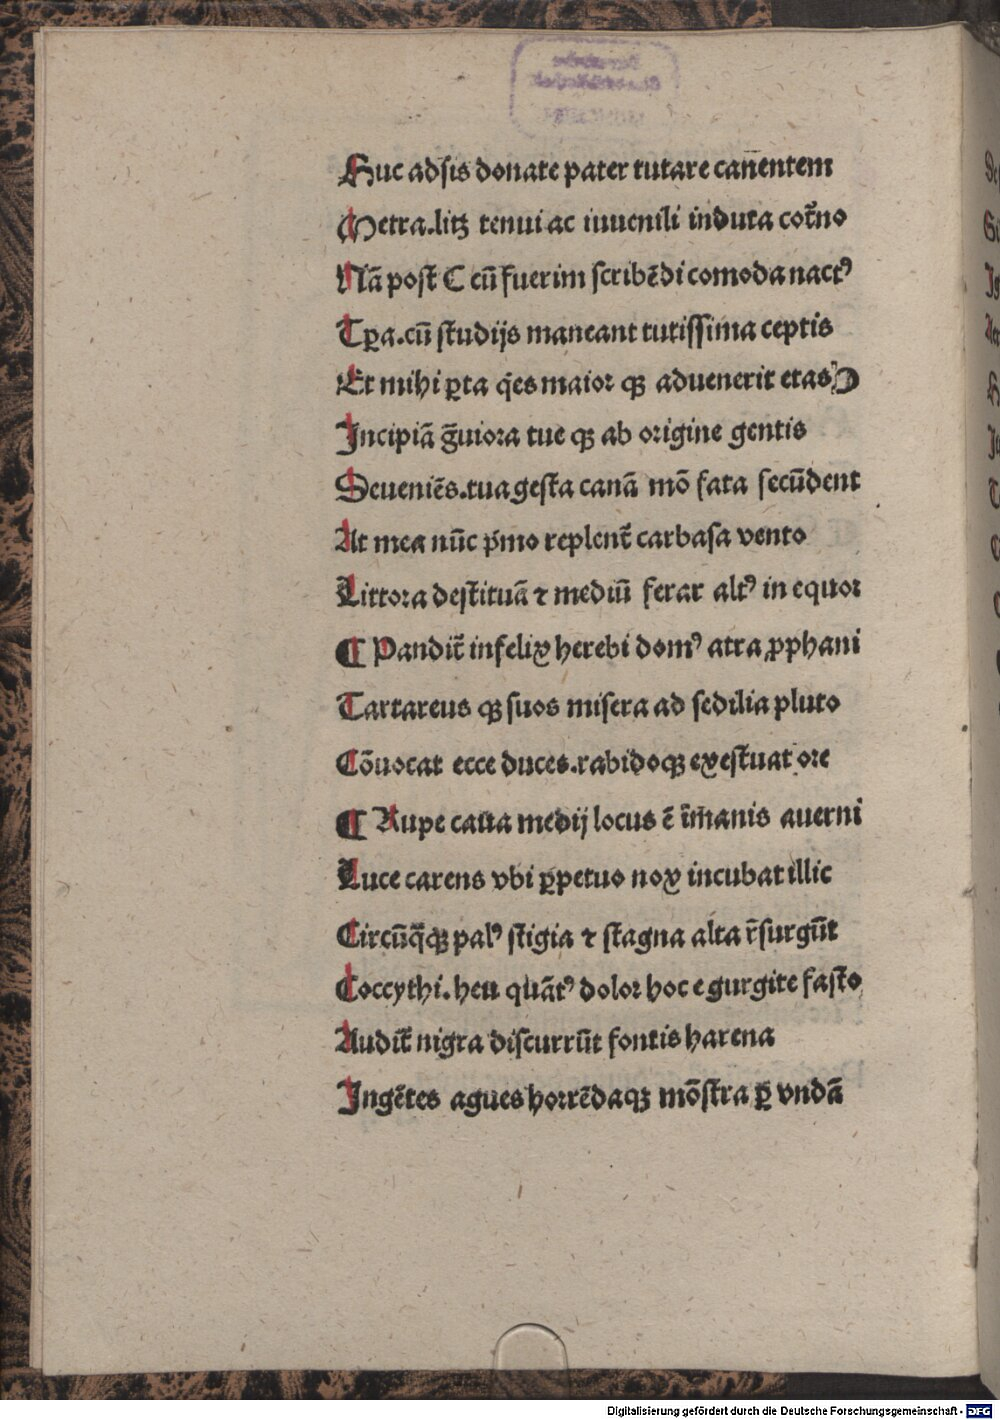 Huc adsis donate pater tutare cañentem
Metra.litꝫ tenui ac iuuenili induta cot̄no
Nā post C cū fuerim scribēdi comoda nactꝰ
Tꝑa.cū studijs maneant tutissima ceptis
Et mihi ꝑta q̄es maior qꝫ aduenerit etas
Incipiā g̃uiora tue qꝫ ab origine gentis
Deueniēs.tua gesta canā mō fata secūdent
At mea nūc p̄mo replent̄ carbasa vento
Littora destituā ⁊ mediū ferar altꝰ in equor
¶ Pandit̄ infelix herebi domꝰ atra ꝓphani
Tartareus qꝫ suos misera ad sedilia pluto
Cōuocat ecce duces.rabidoqꝫ exestuat ore
¶ Rupe caua medij locus ē im̄anis auerni
Luce carens vbi ꝑpetuo nox incubat illic
Circūq̃qꝫ palꝰ stigia ⁊ stagna alta r̄surgūt
Coccythi.heu quātꝰ dolor hoc e gurgite fasto
Audit̄ nigra discurrūt fontis harena
Ingētes agues horrēdaqꝫ mōstra ꝑ vndā
Digitalisierung gefördert durch die Deutsche Forschungsgemeinschaft - DFG